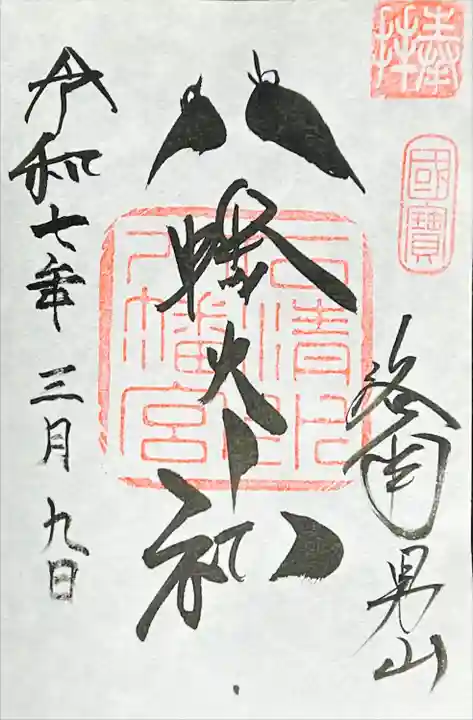 奉拝
國寶
洛南男山
八幡大神
石清水
八幡宮
令和七年三月九日